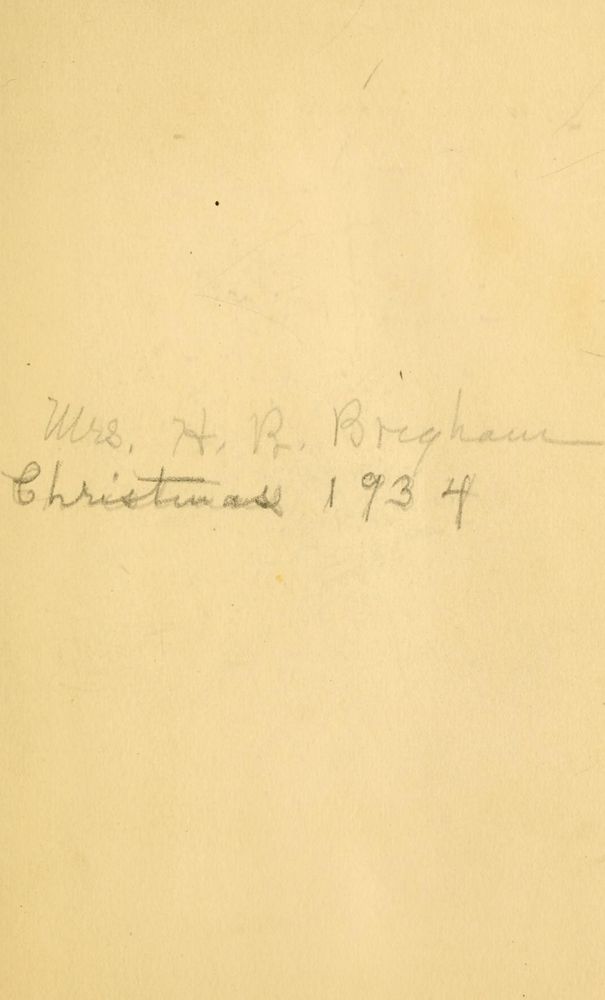 Mrs. H. R. Brigham
Christmas 1934